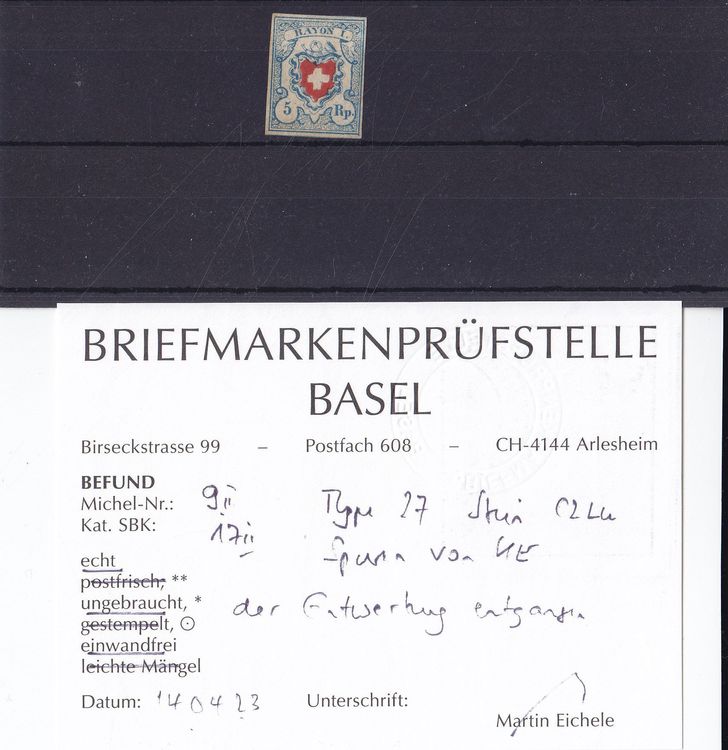 RAYON I.
5 Rp.
BRIEFMARKENPRÜFSTELLE
BASEL
Birseckstrasse 99 – Postfach 608 – CH-4144 Arlesheim
BEFUND
Michel-Nr.: 9II Type 27 Stein C2 LU
Kat. SBK: 17II Spuren von KE
echt
postfrisch, **
ungebraucht, * der Entwertung entgangen
gestempelt, ⊙
einwandfrei
leichte Mängel
Datum: 14 04 23 Unterschrift:
Martin Eichele